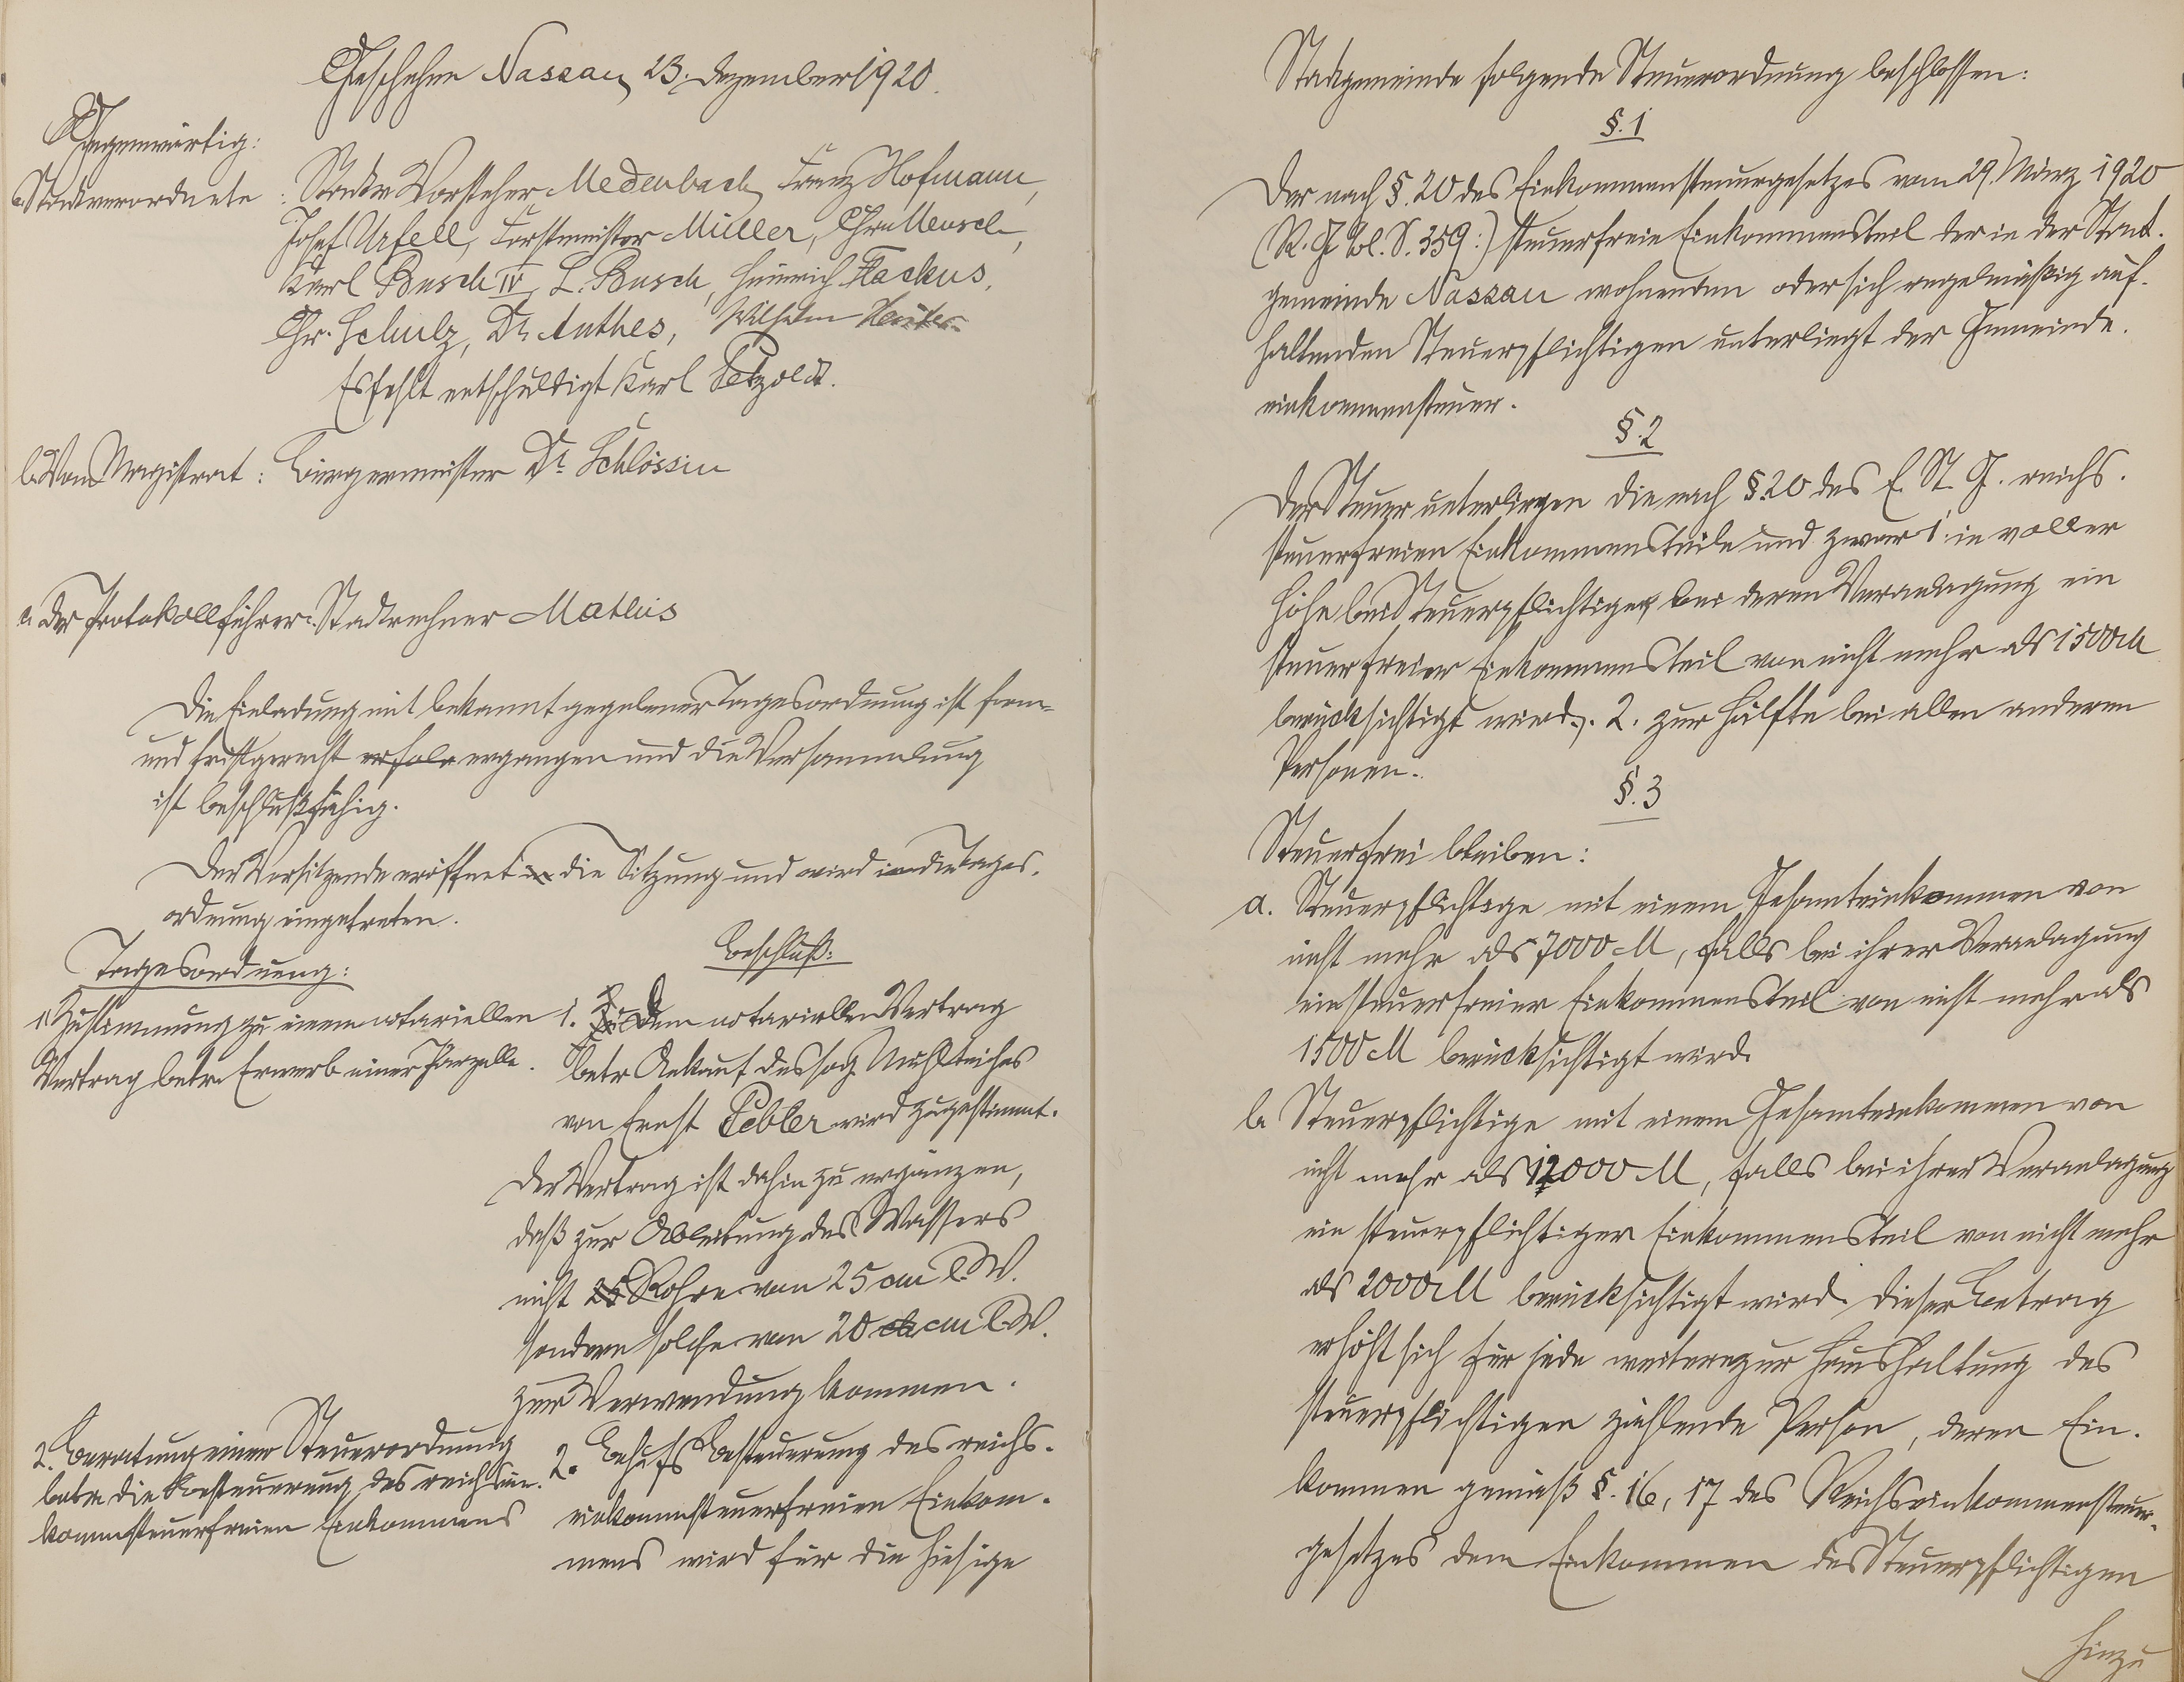 Geschehen Nassau, 23. Dezember 1920.
Gegenwärtig:
a. Stadtverordnete: Stadtv. Vorsteher Medenbach, Franz Hofmann,
Josef Urfell, Forstmeister Müller, Chr. Meusch,
Karl Busch IV, L. Busch, Heinrich Flackus,
Chr. Schulz, Dr. Anthes, Wilhelm
Es fehlt entschuldigt Karl Petzoldt.
b. Vom Magistrat: Bürgermeister Dr. Schlössin
c. Der Protokollführer: Stadtrechner Mathis
Die Einladung mit bekannt gegebener Tagesordnung ist form-
und fristgerecht erfolg ergangen und die Versammlung
ist beschlußfähig.
Der Vorsitzende eröffnet in die Sitzung und wird in die Tages-
ordnung eingetreten.
Tagesordnung:
1. Zustimmung zu einem notariellen
Vertrag betr. Erwerb einer Parzelle.
Beschluß:
1. Dem notariellen Vertrag
betr. Ankauf des sog. Mühlteiches
von Ernst Pebler wird zugestimmt.
Der Vertrag ist dahin zu ergänzen,
daß zur Ableitung des Wassers
nicht 25 Rohre von 25 cm l. W.
sondern solche von 20 cm l. W.
zur Verwendung kommen.
2. Beratung einer Steuerordnung
betr. die Besteuerung des reichsein-
kommsteuerfreien Einkommens
2. Behufs Besteuerung des reichs-
einkommsteuerfreien Einkom-
mens wird für die hiesige
Stadtgemeinde folgende Steuerordnung beschlossen:
§. 1
Der nach §. 20 des Einkommensteuergesetzes vom 29. März 1920
(R. G. Bl. S. 359:) steuerfreie Einkommensteil der in der Stadt-
gemeinde Nassau wohnenden oder sich regelmäßig auf-
haltenden Steuerpflichtigen unterliegt der Gemeinde-
einkommensteuer.
§. 2
Der Steuer unterliegen die nach §. 20 des E. St. G. reichs-
steuerfreien Einkommensteile und zwar 1. in voller
Höhe bei Steuerpflichtigen, bei deren Veranlagung ein
steuerfreier Einkommensteil von nicht mehr als 1500 M
berücksichtigt wird, 2. zur Hälfte bei allen anderen
Personen.
§. 3
Steuerfrei bleiben:
a. Steuerpflichtige mit einem Gesamteinkommen von
nicht mehr als 7000 M, falls bei ihrer Veranlagung
ein steuerfreier Einkommensteil von nicht mehr als
1500 M berücksichtigt wird.
b. Steuerpflichtige mit einem Gesamteinkommen von
nicht mehr als 12000 M, falls bei ihrer Veranlagung
ein steuerpflichtiger Einkommensteil von nicht mehr
als 2000 M berücksichtigt wird. Dieser Betrag
erhöht sich für jede weitere zur Haushaltung des
Steuerpflichtigen zählende Person, deren Ein-
kommen gemäß §. 16, 17 des Reichseinkommensteuer-
gesetzes dem Einkommen des Steuerpflichtigen
hinzu